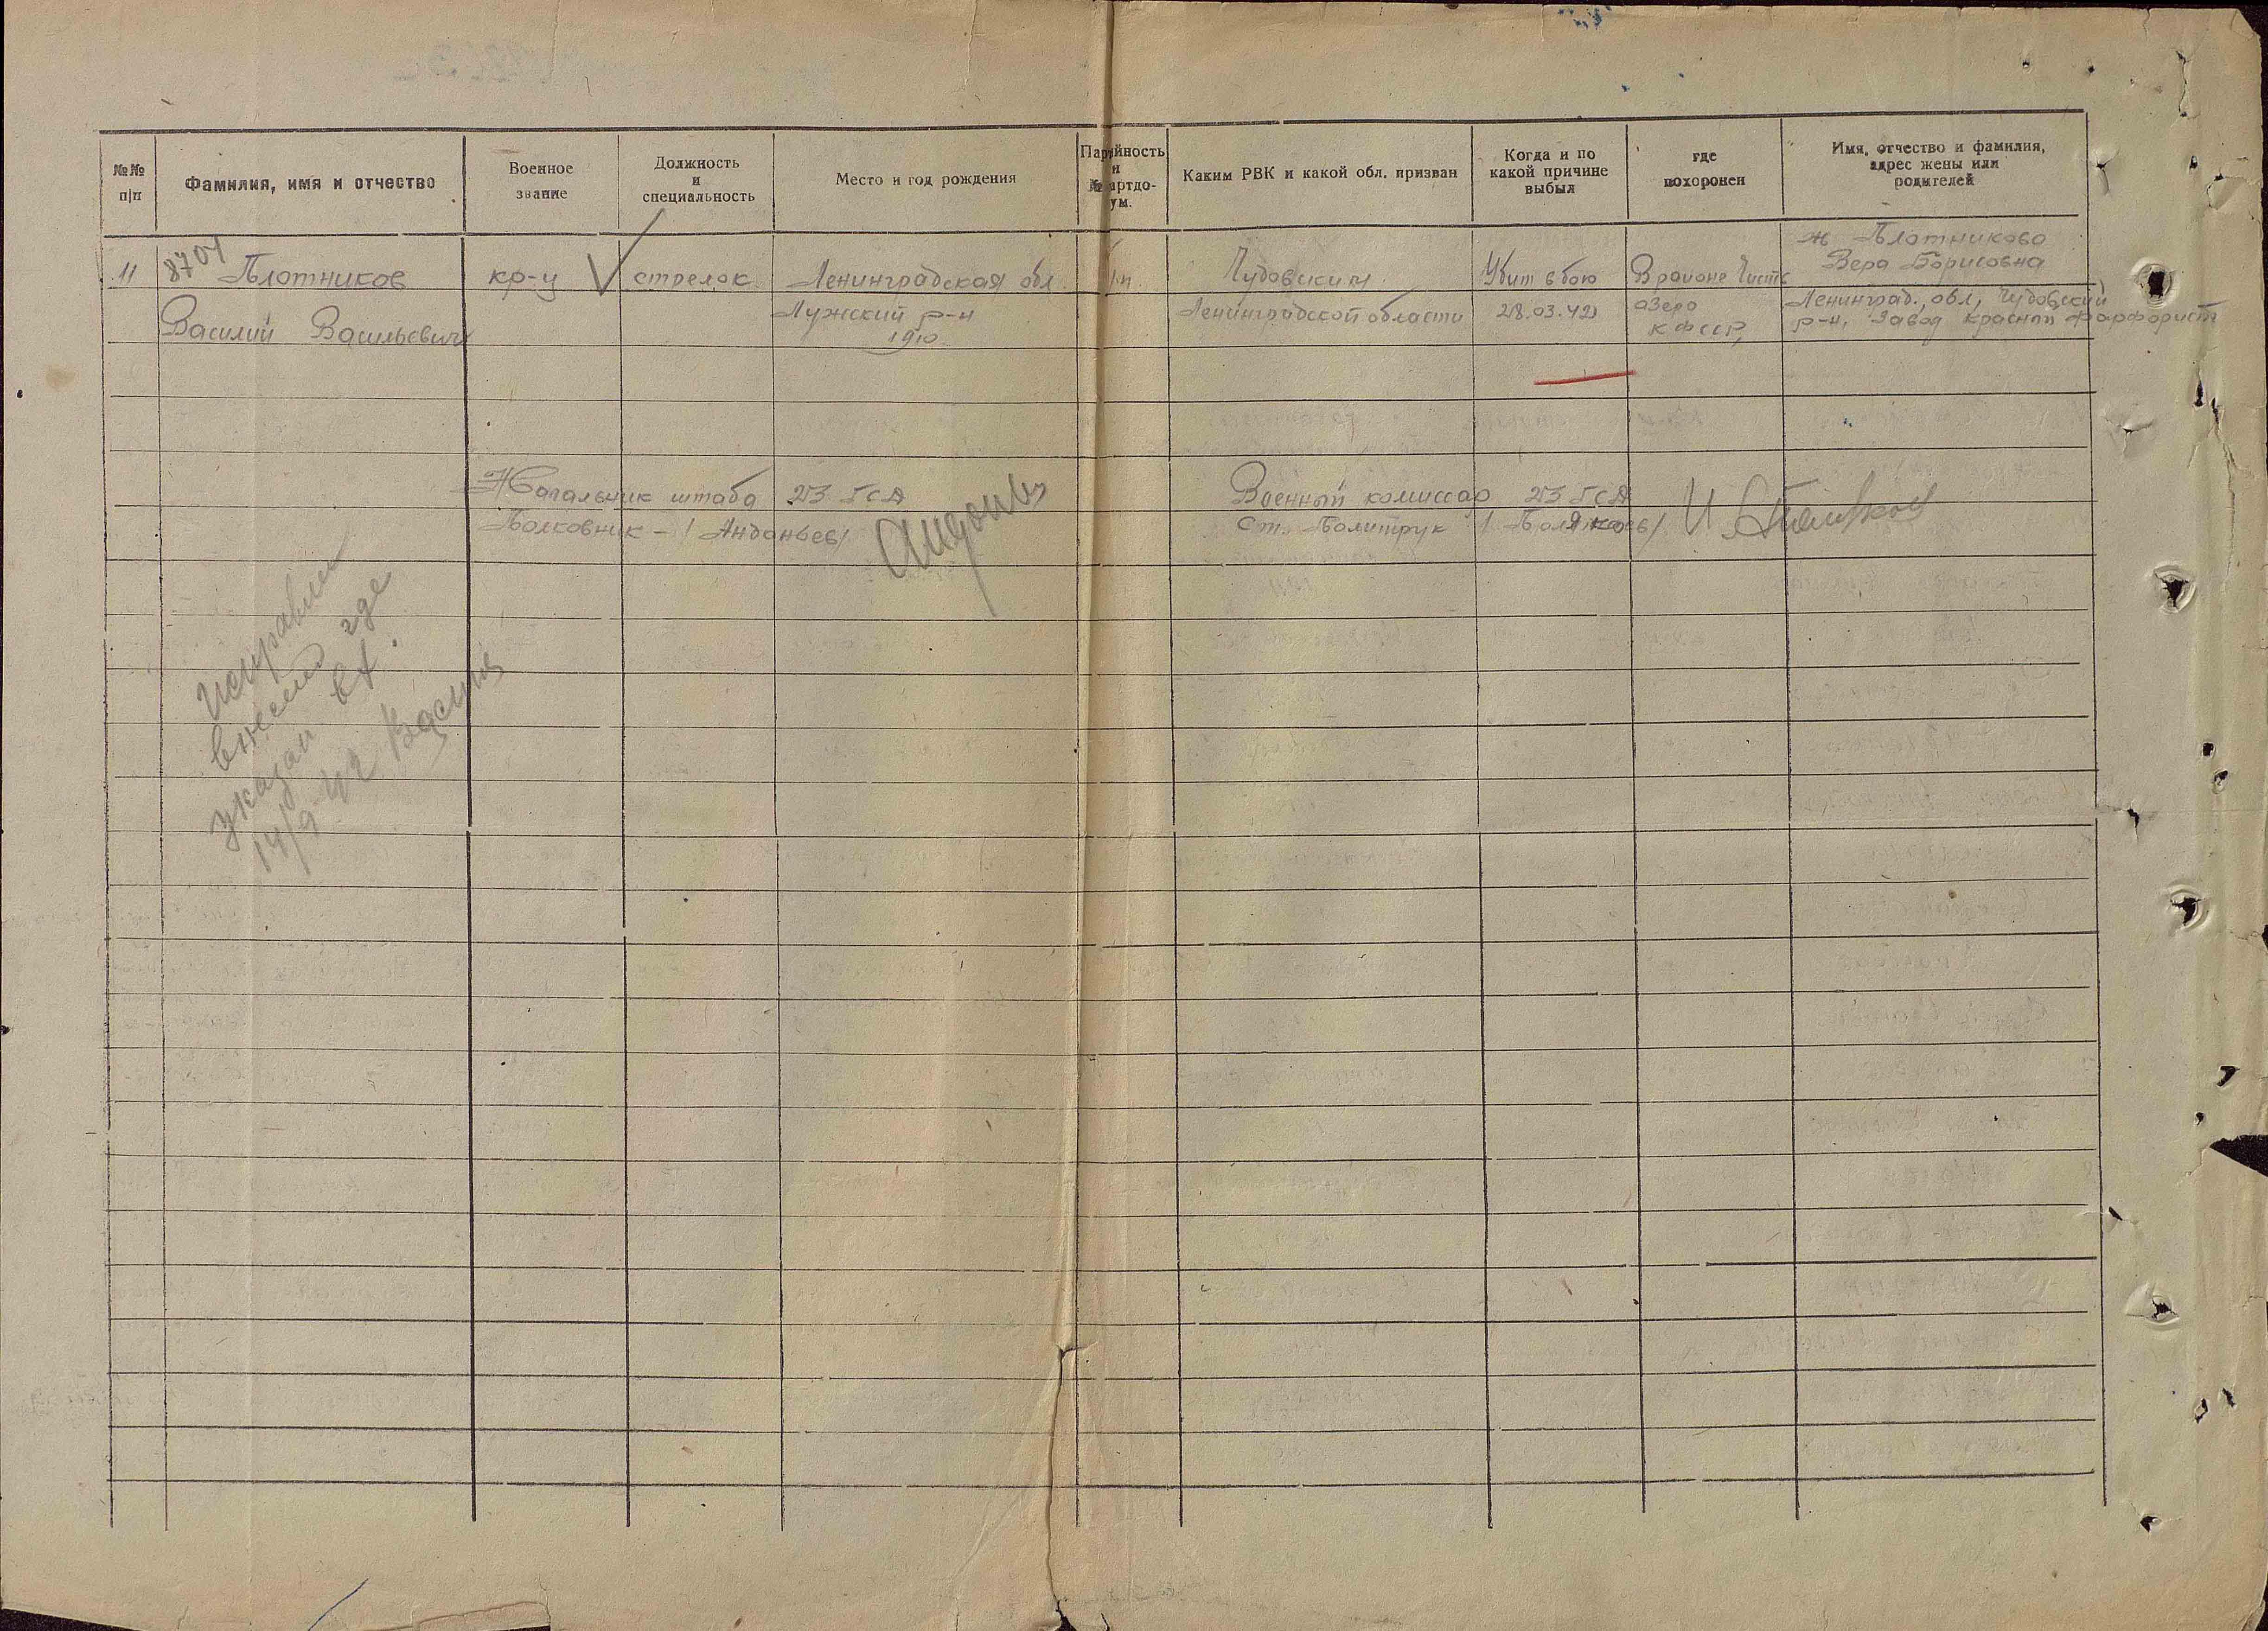 №№ п/п
Фамилия, имя и отчество
Военное звание
Должность и специальность
Место и год рождения
Партийность и
Каким РВК и какой обл. призван
Когда и по какой причине выбыл
где похоронен
Имя, отчество и фамилия, адрес жены или родителей
11
8704
Плотников
Василий Васильевич
кр-ц
стрелок
Ленинградская обл
Лужский р-н
1910
б.п
Чудовским
Ленинградской области
Убит в бою
28.03.42
В районе Чисто
озеро
КФССР,
ж Плотникова
Вера Борисовна
Ленинград., обл, Чудовский
р-н, Завод Красный фарфорист
Начальник штаба 23 ГСД
Полковник - /Анданьев/
Военный комиссар 23 ГСД
Ст. Политрук /Поляков/
внесено где
указан
14/9-42